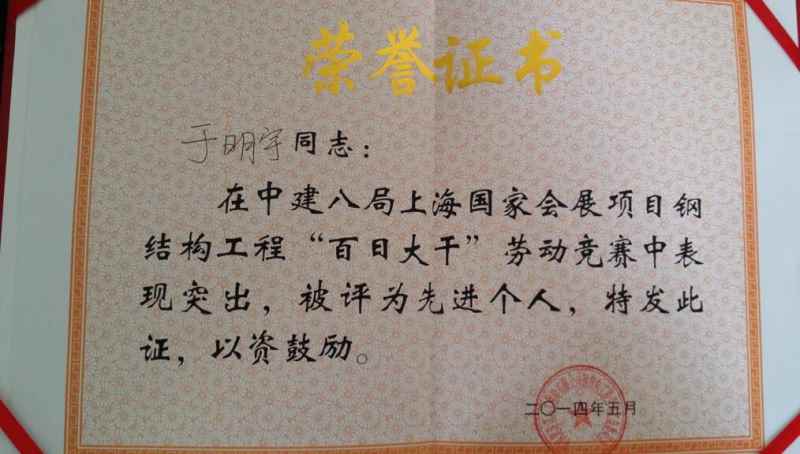 荣誉证书
于明宇同志：
在中建八局上海国家会展项目钢
结构工程“百日大干”劳动竞赛中表
现突出，被评为先进个人，特发此
证，以资鼓励。
二〇一四年五月